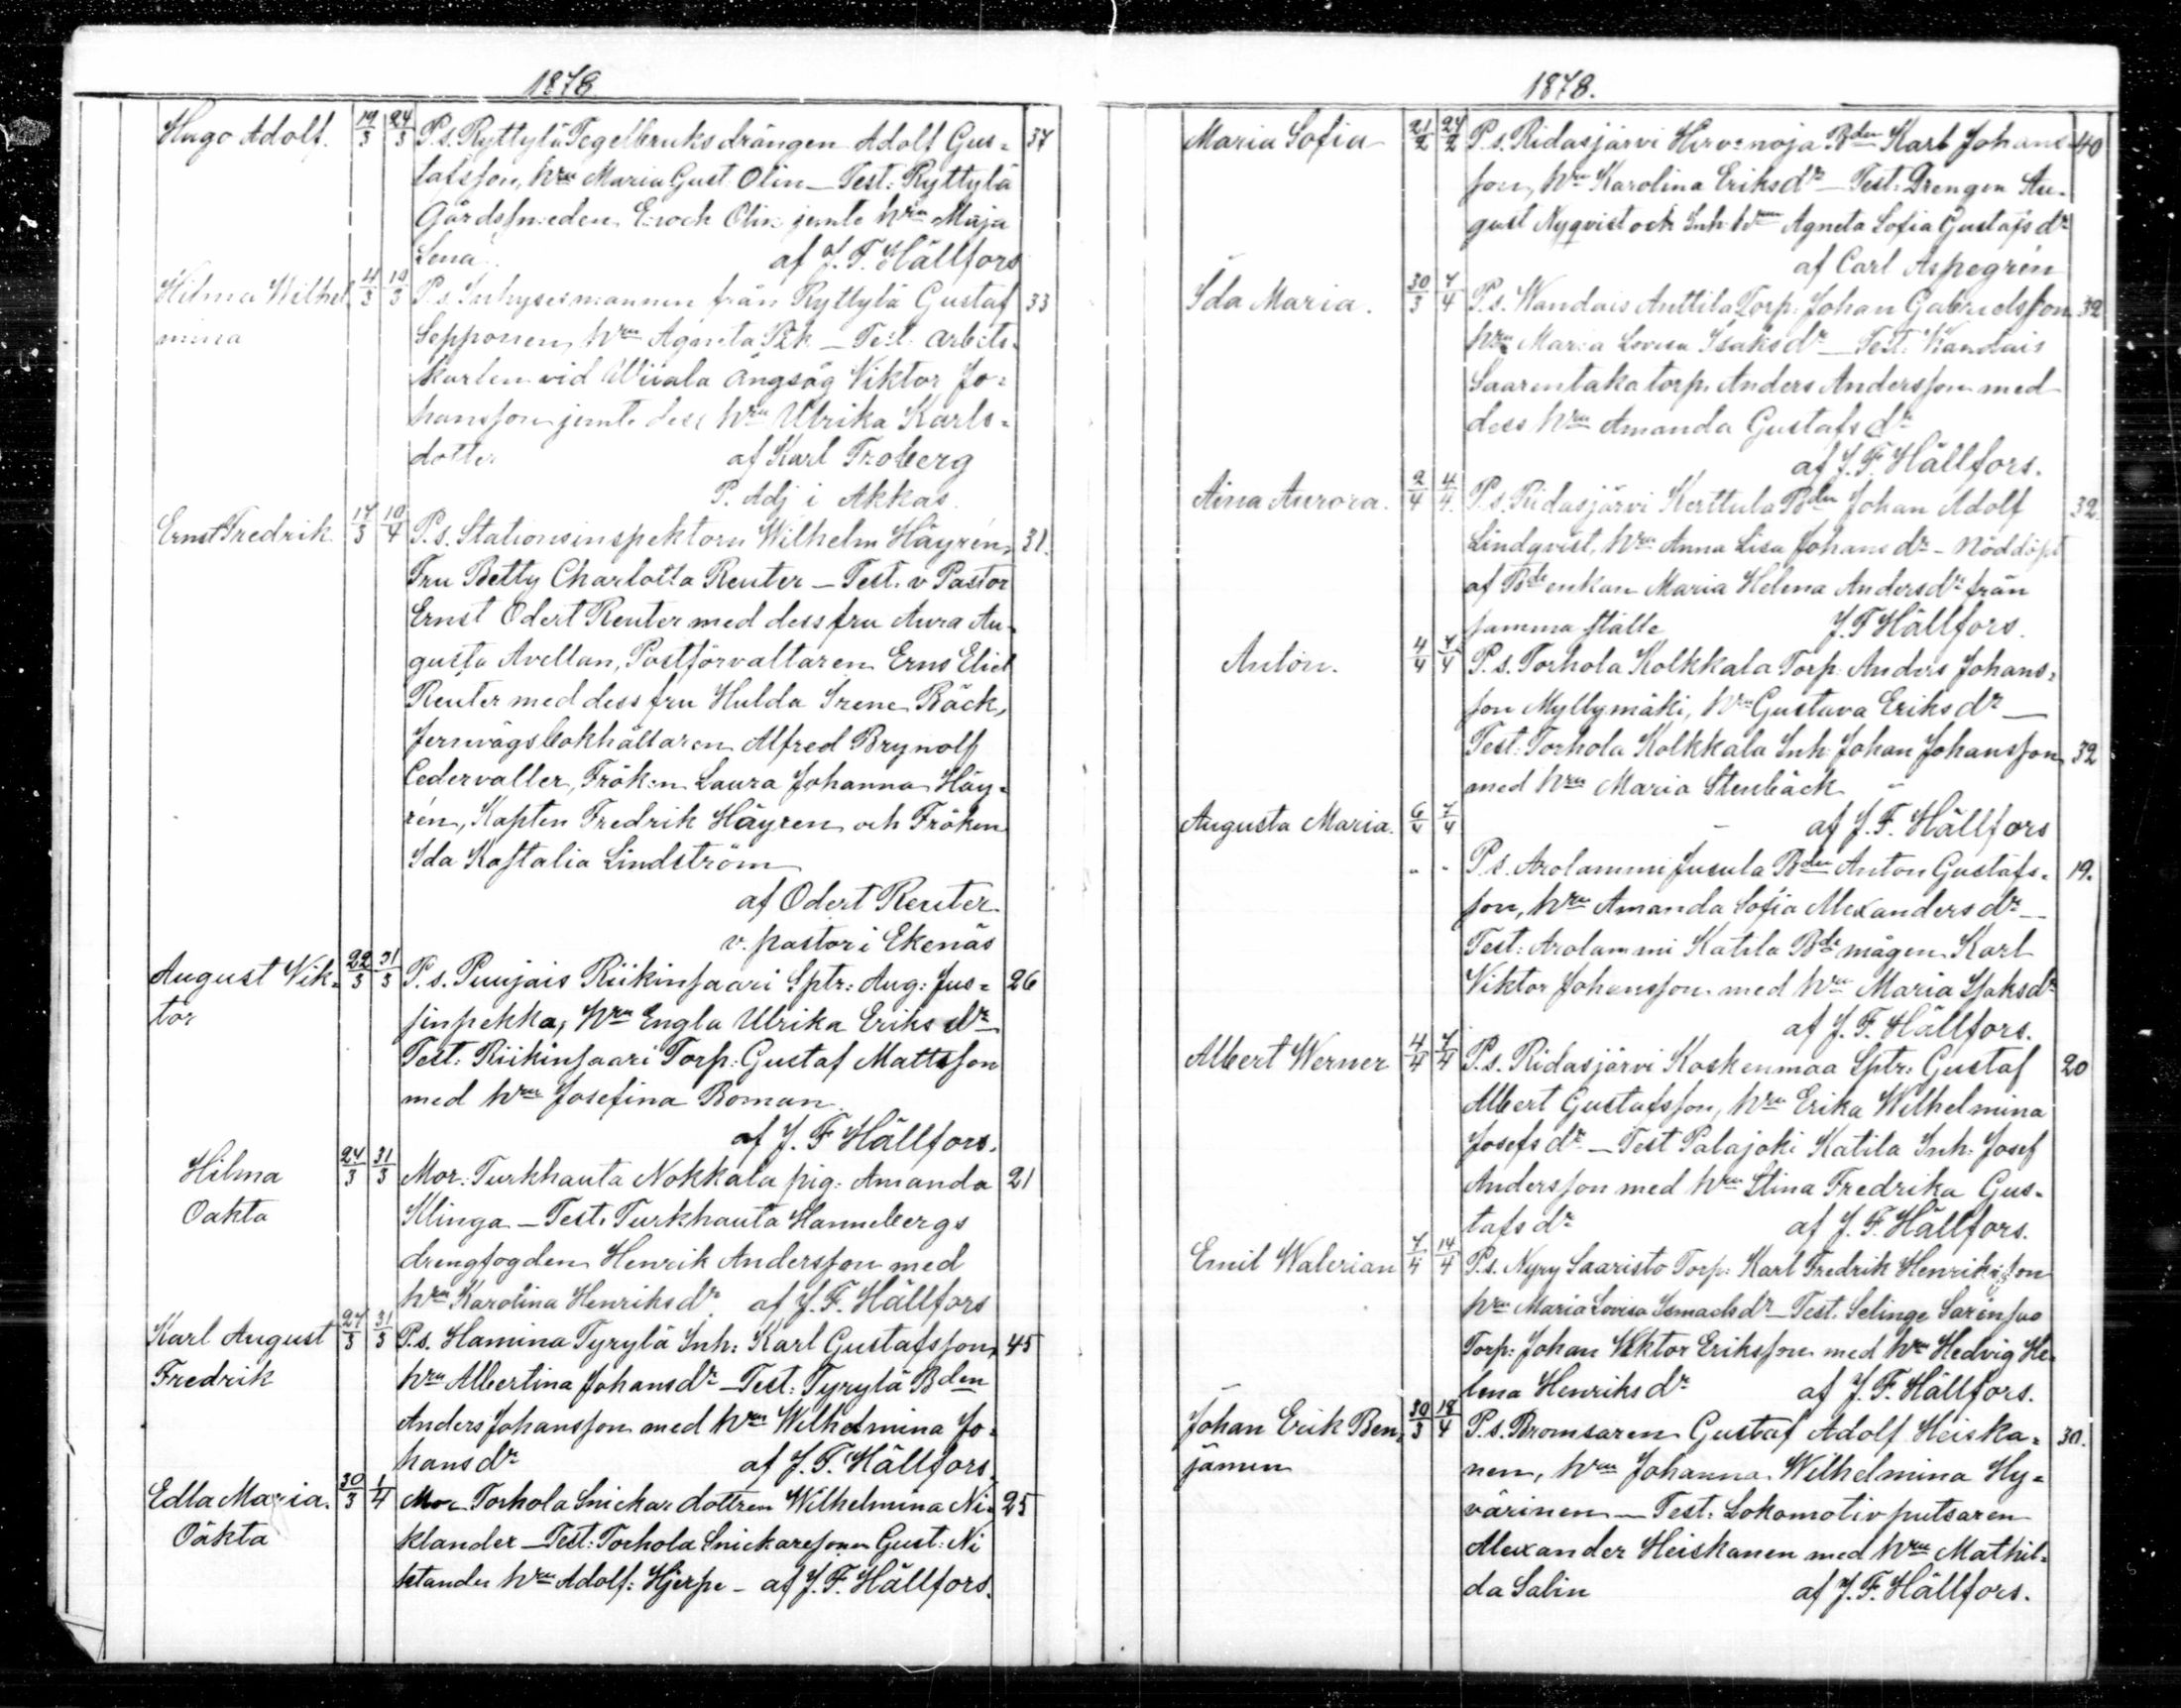 1878.
Hugo Adolf. 19/3 24/3 P. s. Ryttylä Tegelbruksdrängen Adolf Gus= 37
tafsson, hru Maria Gust: Olin — Test: Ryttylä
Gårdssmeden Enock Olin jemte hru Maja
Lena af J. F. Hällfors
Hilma Wilhel 4/3 10/3 P. s. Inhysesmannen från Ryttylä Gustaf 33
mina Sepponen, hru Agneta — Test: arbets-
karlen vid Wiiala ångsåg Viktor Jo=
hansson jemte dess hru Ulrika Karls=
dotter af Karl Froberg
P. Adj i Akkas.
Ernst Fredrik 17/3 10/4 P. s. Stationsinspektorn Wilhelm Häyrén, 31.
Fru Betty Charlotta Reuter — Test. v Pastor
Ernst Odert Reuter med dess fru Aura Au-
gusta Avellan, Postförvaltaren Erns Eliel
Reuter med dess fru Hulda Irene Bäck,
Jernvägsbokhållaren Alfred Brynolf
Cedervaller, Fröken Laura Johanna Häy=
rén, Kapten Fredrik Häyren och Fröken
Ida Kastalia Lindström
af Odert Reuter
v. pastor i Ekenäs
August Vik= 22/3 31/3 P. s. Puujais Riikinsaari Sptr: Aug: Jus= 26
tor sinpekka, hru Engla Ulrika Eriksdr —
Test: Riikinsaari Torp: Gustaf Mattsson
med hru Josefina Boman
af J. F. Hällfors.
Hilma 24/3 31/3 Mor: Turkhauta Nokkala pig: Amanda 21
Oäkta Klinga — Test. Turkhauta Hannebergs
drengfogden Henrik Andersson med
hru Karolina Henriksdr af J. F. Hällfors
Karl August 27/3 31/3 P. s. Hamina Tyrylä Inh: Karl Gustafsson, 45
Fredrik hru Albertina Johansdr — Test: Tyrylä Bden
Anders Johansson med hru Wilhelmina Jo-
hansdr af J. F. Hällfors.
Edla Maria. 30/3 1/4 Mor Torhola Snickardottren Wilhelmina Ni= 25
Oäkta klander — Test: Torhola Snickaresonen Gust: Ni
klander hru Adolf: Hjerpe — af J. F. Hällfors.
1878.
Maria Sofia 21/2 24/2 P. s. Ridasjärvi Hirvenoja Bden Karl Johans- 40
son, hru Karolina Eriksdr — Test: Drengen Au-
gust Nyqvist och Inh. Agneta Sofia Gustafsdr
af Carl Aspegrén
Ida Maria. 30/3 7/4 P. s. Wandais Anttila Torp: Johan Gabrielsson 32
hru Maria Lovisa Isaksdr — Test: Wandais
Saarentaka torp. Anders Andersson med
dess hru Amanda Gustafsdr
af J. F. Hällfors.
Aina Aurora. 2/4 4/4 P. s. Ridasjärvi Kerttula Bden Johan Adolf 32.
Lindqvist, hru Anna Lisa Johansdr — Nöddöpt
af Bde enkan Maria Helena Andersdr från
samma ställe J. F Hällfors.
Anton. 4/4 7/4 P. s. Torhola Kolkkala Torp: Anders Johans=
son Myllymäki, hru Gustava Eriksdr —
Test: Torhola Kolkkala Inh: Johan Johansson 32
med hru Maria Stenbäck
Augusta Maria. 6/4 7/4 af J. F. Hällfors
P. s. Arolammi Jusula Bden Anton Gustafs= 19.
son, hru Amanda Sofia Alexandersdr —
Test: Arolammi Katila Bde mågen Karl
Viktor Johansson med hru Maria Isaksdr
af J. F. Hällfors.
Albert Werner 4/4 7/4 P. s. Ridasjärvi Koskenmaa Sptr: Gustaf 20
Albert Gustafsson, hru Erika Wilhelmina
Josefsdr — Test Palajoki Katila Inh: Josef
Andersson med hru Stina Fredrika Gus-
tafsdr af J. F. Hällfors.
Emil Walerian 7/4 14/4 P. s. Nyry Saaristo Torp: Karl Fredrik Henriksson
hru Maria Lovisa — Test. Selinge Sarénsuo
Torp: Johan Viktor Eriksson med hru Hedvig He-
lena Henriksdr af J. F. Hällfors.
Johan Erik Ben= 30/3 18/4 P. s. Bromsaren Gustaf Adolf Heiska= 30.
jämen nen, hru Johanna Wilhelmina Hy=
värinen — Test: Lokomotivputsaren
Alexander Heiskanen med hru Mathil=
da Salin af J. F. Hällfors.